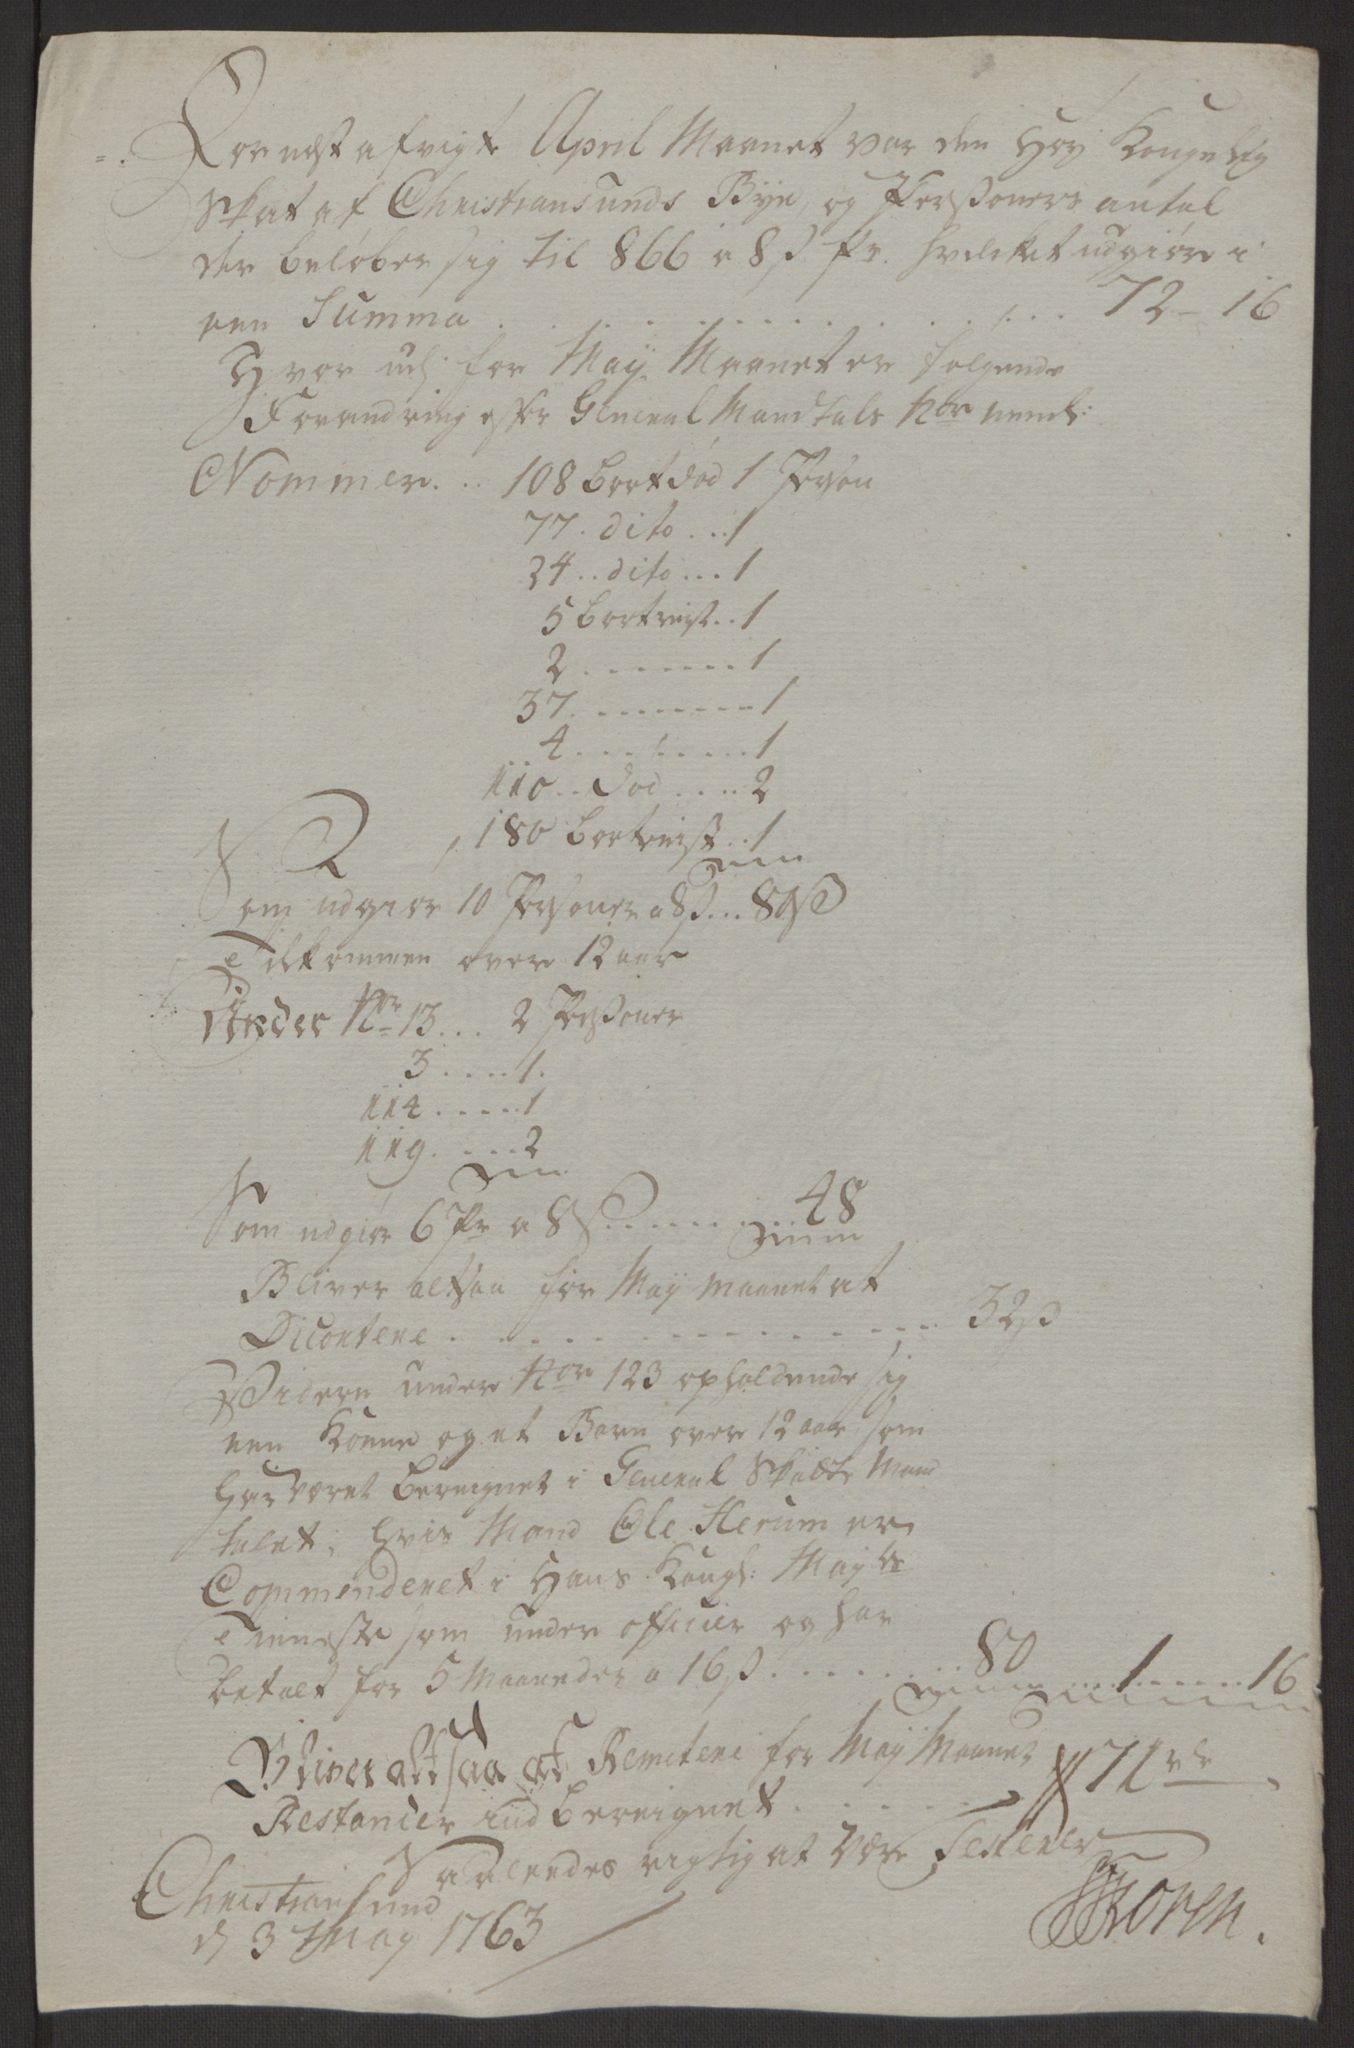 For nest afvigte April Maanet var den Høy Kongelig
Skat af Christiansunds Bye, og Perssoners antal
der beløber sig til 866 a 8 s pr. hvilket udgiøre i
een Summa . . . . . . . . . . . . . . 72 - 16
Hvor udj for Maÿ Maanet er følgende
Forandring efter General Mandtals Nor neml:
Nommer. .. 108 bortdød 1 Person
77. dito . .. 1
24 .. dito ... 1
5 bortreist .. 1
2 . . . . . . . 1
37. . . . . . . . 1
4 . . . . . . . 1
110 .. død . . .. 2
180 bortreist .. 1
Som udgiør 10 Persone a 8 s ... 80 s
Tilkommen over 12 aar
Under Nr 13 . .. 2 Perssoner
3 . . . . 1.
114 . . . . . 1
119. . . . 2
Som udgiør 6 Pr a 8 s . . . . . . . 48
Bliver altsaa for Maÿ Maanet at
Dicortere . . . . . . . . . . . . . 32 s
Videre under Nor 123 opholdende sig
een Konne og et Barn over 12 aar, som
har været bereignet i General Skatte Mand
talet, hvis Mand Ole Herum er
Commenderet i Hans Kongl: Mayts
Tienneste som under officier og har
betalt for 5 Maaneder a 16 s . . . . . . . 80 . . . 1 . . . . . 16
Bliver altsaa at Remitere for Maÿ Maanet
Restancer iud bereignet . . . . . . . 71 rd
Saaleedes rigtig at være Testerer
Christiansund
d 3 May 1763
Koren.